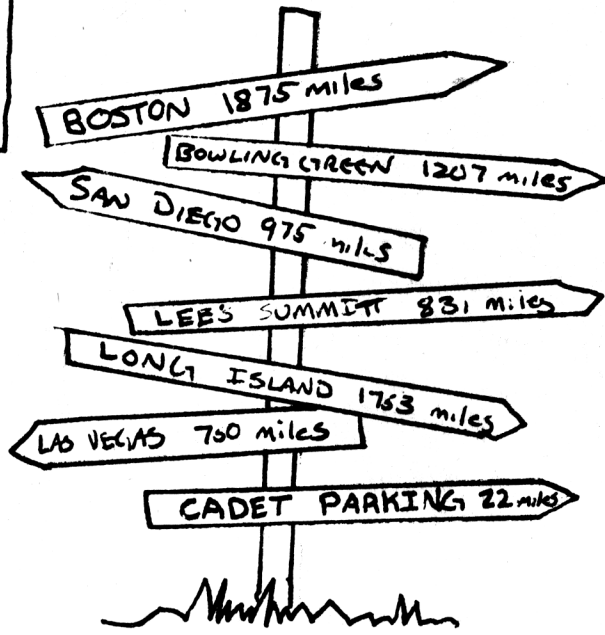 BOSTON 1875 miles
BOWLING GREEN 1207 miles
SAN DIEGO 975 miles
LEE'S SUMMITT 831 miles
LONG ISLAND 1753 miles
LAS VEGAS 750 miles
CADET PARKING 22 miles